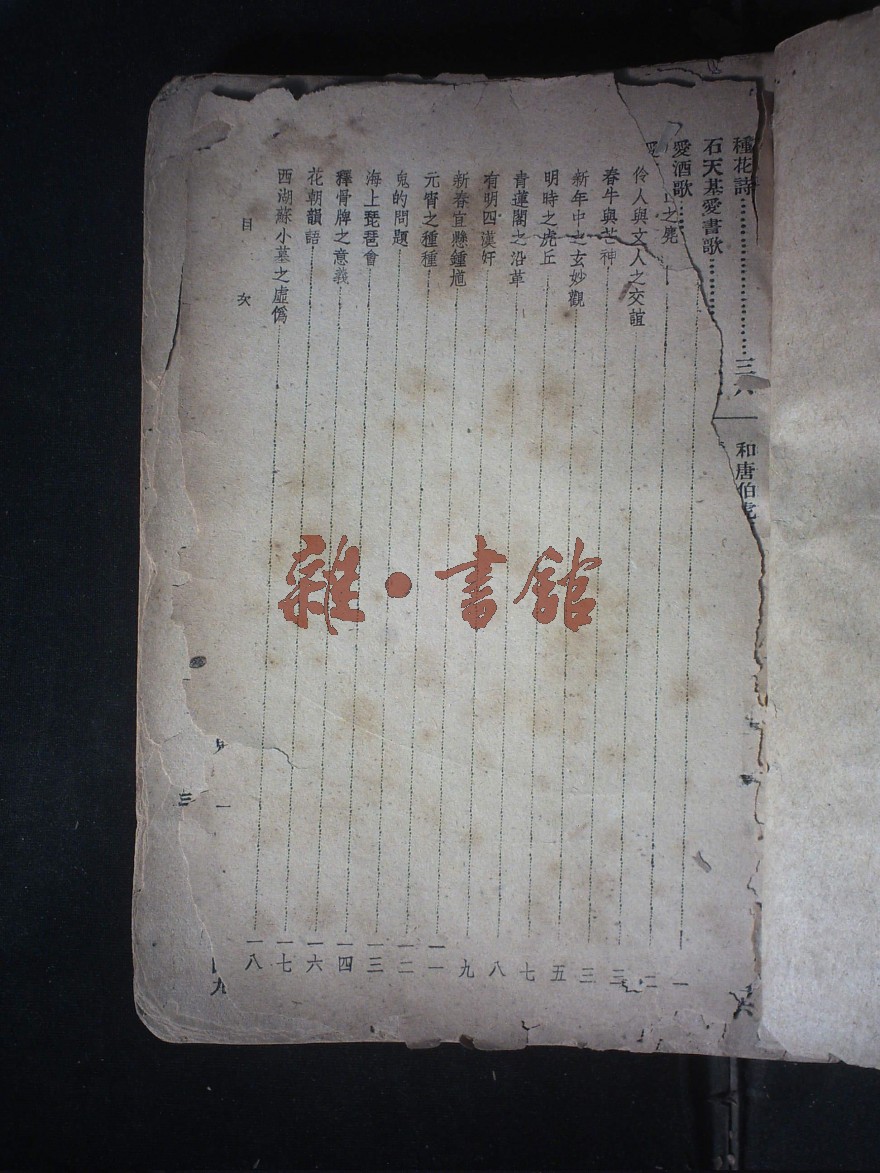 種花詩……三六
石天基愛書歌……
愛酒歌……
和唐伯虎
之䴢……一
伶人與文人之交誼……二
春牛與芒神……三
新年中之玄妙觀……三
明時之虎丘……五
青蓮閣之沿革……七
有明四漢奸……八
新春宜懸鍾馗……九
元宵之種種……一一
鬼的問題……一二
海上琵琶會……一三
釋骨牌之意義……一四
花朝韻語……一六
西湖蘇小墓之虛僞……一七
一八
目次
一
三
九
雜·書館